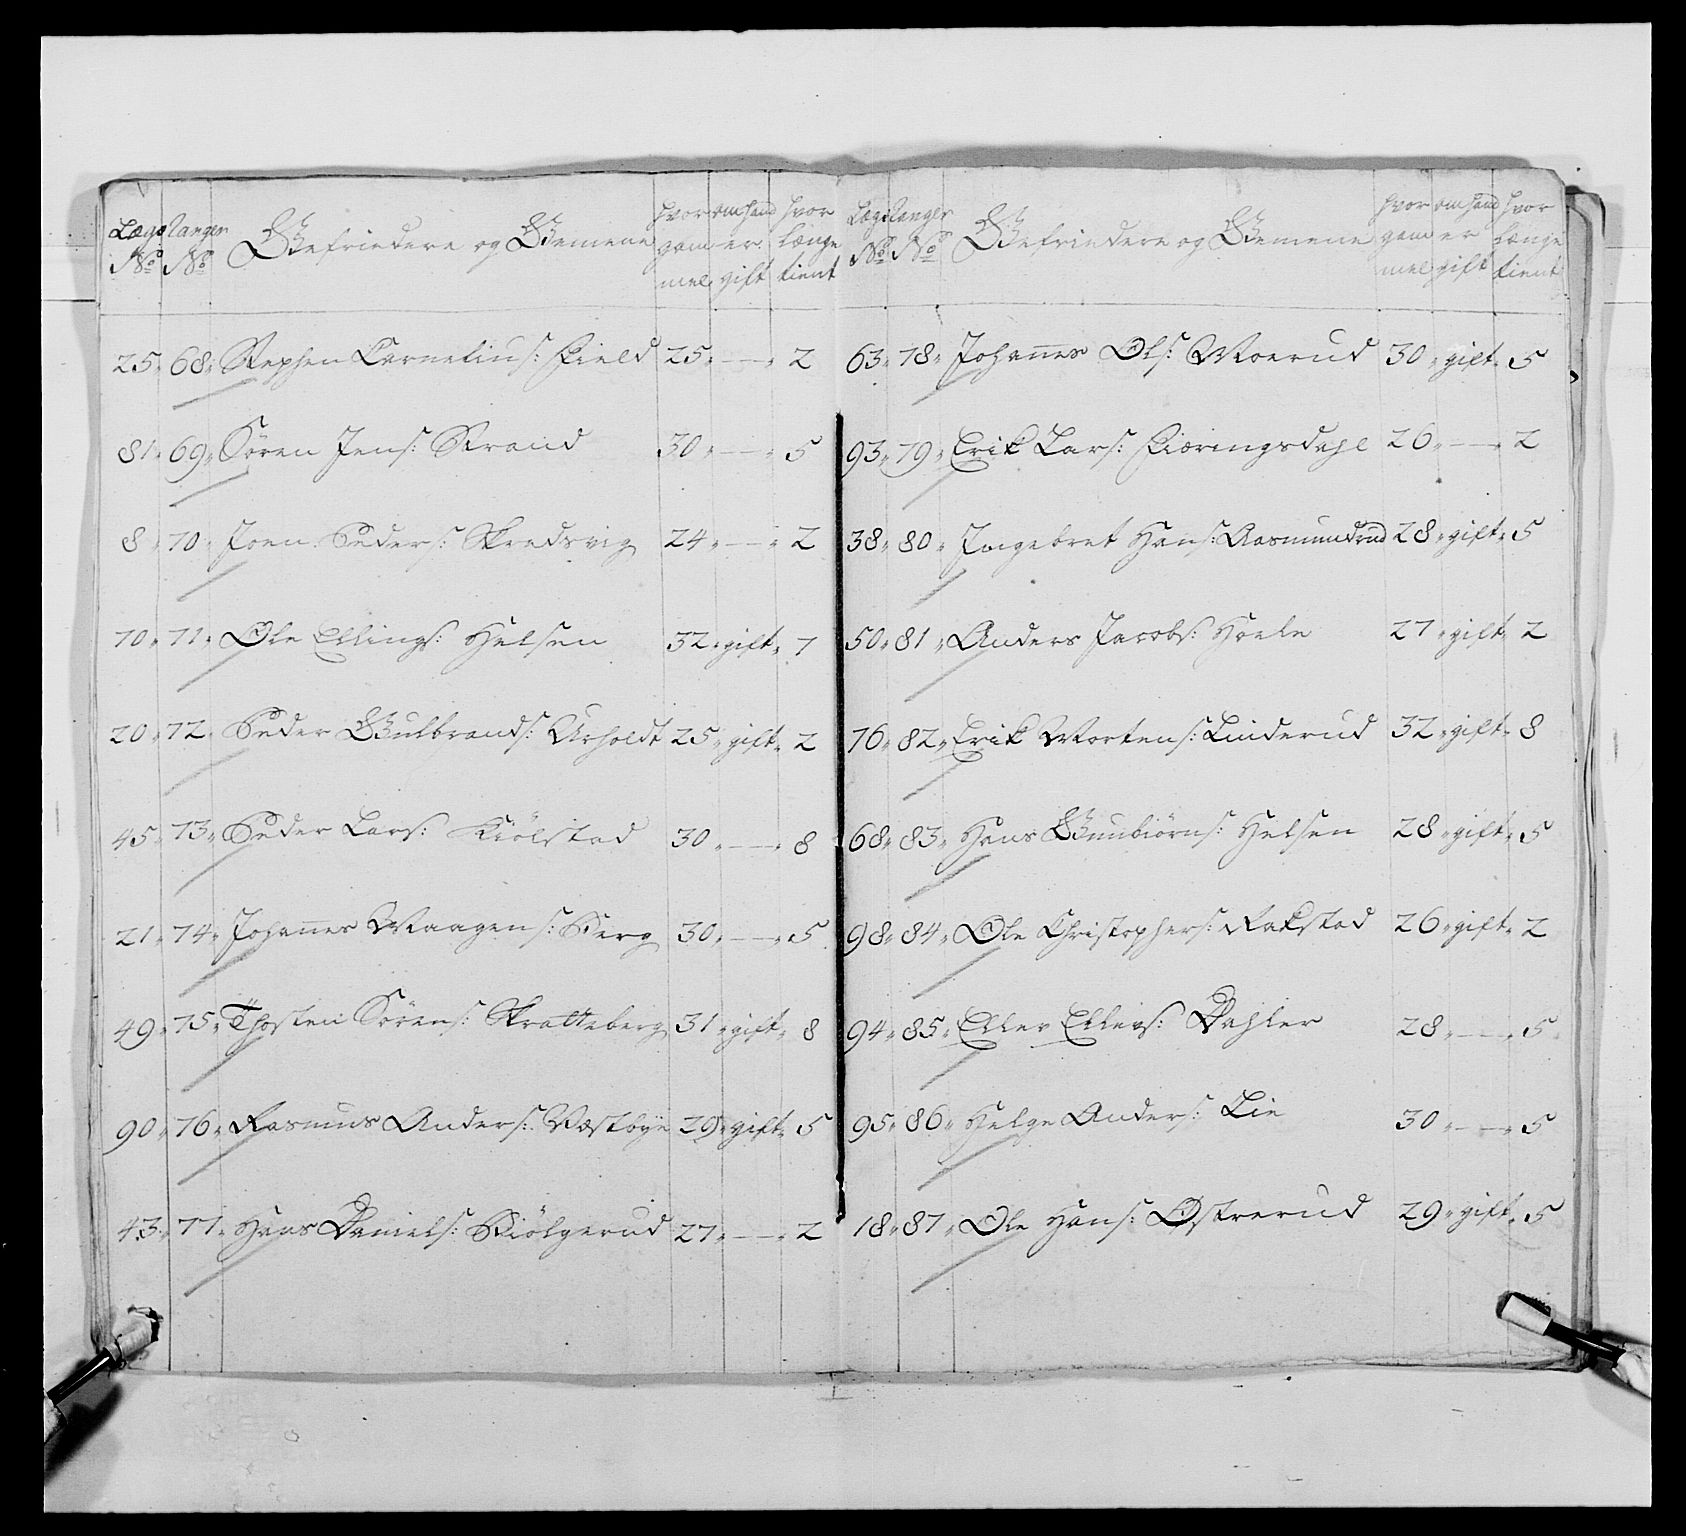 Lægs No Ranger No Gefriedere og Gemene hvor gam mel om hand er gift hvor længe tient
25 68 Stephen Cornelius: Field 25 — 2
81 69 Sören Jens: Strand 30 — 5
8 70 Joen Peders: Skredsvig 24 — 2
70 71 Ole Ellings: Helsen 32 gift 7
20 72 Peder Gulbrands: Aasholdt 25 gift 2
45 73 Peder Lars: Kiölstad 30 — 8
21 74 Johannes Maagens: Berg 30 — 5
49 75 Thosten Sörens: Skratteberg 31 gift 8
90 76 Rasmus Anders: Væstbye 29 gift 5
43 77 Hans Daniels: Skiölgerud 27 — 2
Lægs No Ranger No Gefriedere og Gemene hvor gam mel om hand er gift hvor længe tient
63 78 Johannes Ols: Moerud 30 gift 5
93 79 Erik Lars: Fiæringsdahl 26 — 2
38 80 Ingebret Hans: Aasmundrud 28 gift 5
50 81 Anders Jacobs: Hoele 27 gift 2
76 82 Erik Mortens: Linderud 32 gift 8
68 83 Hans Gunbiörns: Helsen 28 gift 5
98 84 Ole Christophers: Rakstad 26 gift 2
94 85 Ellev Ellevs: Dahler 28 — 5
95 86 Helge Anders: Lie 30 — 5
18 87 Ole Hans: Østrerud 29 gift 5